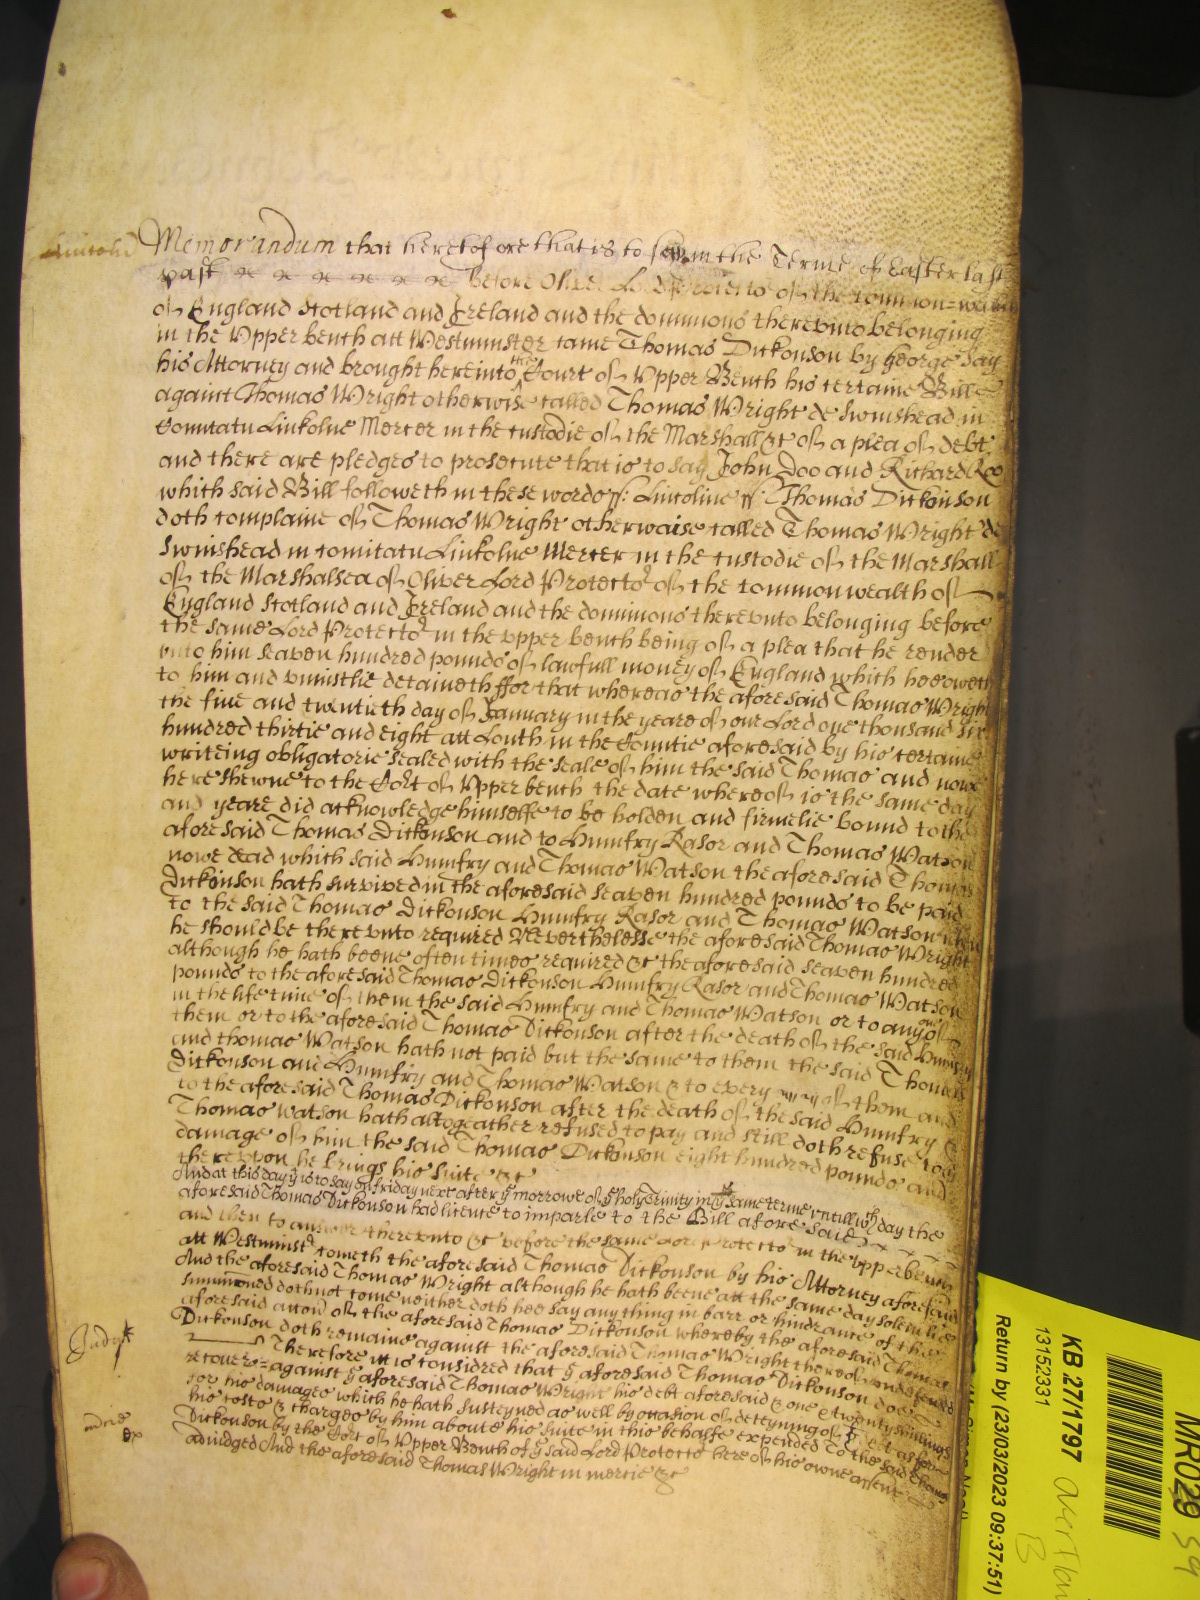 Lincolne
Memorandum that heretofore that is to say in the Terme of Easter last
past before Oliver Lord Protector of the Common=wealth
of England Scotland and Ireland and the dominions therevnto belonging
in the Vpper bench att Westminster came Thomas Dickonson by George Say
his Attorney and brought here into the Court of Vpper Bench his certaine Bill
against Thomas Wright otherwise called Thomas Wright de Swinshead in
Comitatu Linkolne Mercer in the custodie of the Marshall &c of a plea of debt
and there are pledges to prosecute that is to say John Doo and Richard Roo
which said Bill followeth in these words ss: Lincolne ss: Thomas Dickonson
doth complaine of Thomas Wright otherwaise called Thomas Wright de
Swinshead in comitatu Linkolne Mercer in the custodie of the Marshall
of the Marshalsea of Oliver Lord Protector of the Commonwealth of
England Scotland and Ireland and the dominions therevnto belonging before
the same Lord Protector in the vpper bench being of a plea that he render
vnto him seaven hundred pounds of lawfull money of England which hee oweth
to him and vniustlie detaineth ffor that whereas the aforesaid Thomas Wright
the five and twentieth day of January in the yeare of our Lord one thousand six
hundred thirtie and eight att Louth in the Countie aforesaid by his certaine
writeing obligatorie sealed with the seale of him the said Thomas and nowe
here shewne to the Cort of Vpper bench the date whereof is the same day
and yeare did acknowledge himselfe to be holden and firmelie bound to the
aforesaid Thomas Dickonson and to Humfry Rasor and Thomas Watson
nowe dead which said Humfry and Thomas Watson the aforesaid Thomas
Dickonson hath survived in the aforesaid seaven hundred pounds to be paid
to the said Thomas Dickonson Humfry Rasor and Thomas Watson when
he should be therevnto required Neverthelesse the aforesaid Thomas Wright
although he hath beene often times required &c the aforesaid seaven hundred
pounds to the aforesaid Thomas Dickonson Humfry Rasor and Thomas Watson
in the life time of them the said Humfry and Thomas Watson or to any one of
them or to the aforesaid Thomas Dickonson after the death of the said Humfry
and Thomas Watson hath not paid but the same to them the said Thomas
Dickonson and Humfry and Thomas Watson & to every of them and
to the aforesaid Thomas Dickonson after the death of the said Humfry &
Thomas Watson hath altogeather refused to pay and still doth refuse to
damage of him the said Thomas Dickonson eight hundred pounds and
therevpon he brings his suite &c
And at this day yt is to say on Friday next after ye morrowe of ye holy Trinity in ye same terme vntill wch day the
aforesaid Thomas Dickonson had licence to imparle to the Bill aforesaid
and then to answer therevnto &c before the same Lord Protector in the vpper bench
att Westminster cometh the aforesaid Thomas Dickonson by his Attorney aforesaid
And the aforesaid Thomas Wright although he hath beene att the same day solemlie
summoned doth not come neither doth hee say any thing in barr or hindrance of the
aforesaid accon of the aforesaid Thomas Dickonson whereby the aforesaid Thomas
Dickonson doth remaine against the aforesaid Thomas Wright thereof vndefended
Judgt
Therefore it is considred that ye aforesaid Thomas Dickonson doe
recover against ye aforesaid Thomas Wright his debt aforesaid & one & twenty shillings
for his damages which he hath susteyned as well by occasion of deteyning of
his costs & charges by him about his suite in this behalfe expended To the said Thomas
Dickonson by the Cort of Vpper Bench of ye said Lord Protector here of his owne assent
mercie
ex
adiudged And the aforesaid Thomas Wright in mercie &c
MR029
KB 27/1797
13152331
Return by (23/03/2023 09:37:51)